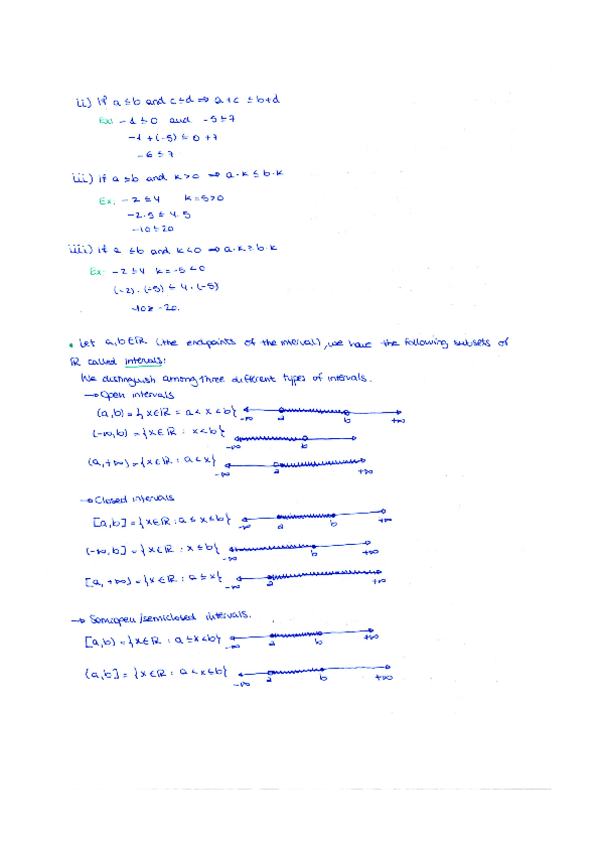 ii) If a ≤ b and c ≤ d ⇒ a+c ≤ b+d
Ex: -1 ≤ 0 and -5 ≤ 7
-1 + (-5) ≤ 0 + 7
-6 ≤ 7
iii) if a ≤ b and k > 0 ⇒ a·k ≤ b·k
Ex: -2 ≤ 4 k = 5 > 0
-2·5 ≤ 4·5
-10 ≤ 20
iiii) if a ≤ b and k < 0 ⇒ a·k ≥ b·k
Ex: -2 ≤ 4 k = -5 < 0
(-2)·(-5) ≤ 4·(-5)
10 ≥ -20.
• Let a,b ∈ ℝ (the endpoints of the interval), we have the following subsets of
ℝ called intervals:
We distinguish among three different types of intervals.
→ Open intervals
(a,b) = { x ∈ ℝ = a < x < b} -∞ a b +∞
(-∞,b) = {x ∈ ℝ : x < b} -∞ b
(a,+∞) = {x ∈ ℝ : a < x} -∞ a +∞
→ Closed intervals
[a,b] = {x ∈ ℝ : a ≤ x ≤ b} -∞ a b +∞
(-∞,b] = {x ∈ ℝ : x ≤ b} -∞ b +∞
[a,+∞) = {x ∈ ℝ : a ≤ x} -∞ a +∞
→ Semiopen/semiclosed intervals.
[a,b) = {x ∈ ℝ : a ≤ x < b} -∞ a b +∞
(a,b] = {x ∈ ℝ : a < x ≤ b} -∞ a b +∞